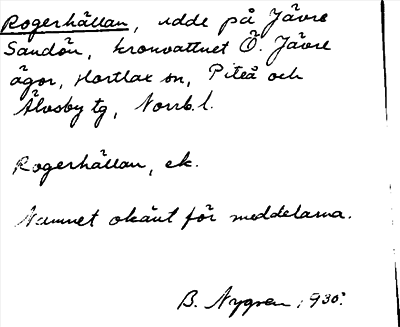 Rogerhällan, udde på Jävre
Sandön, kronvattnet Ö. Jävre
ägor, Hortlax sn, Piteå och
Älvsby tg, Norrb. l.
Rogerhällan, ek.
Namnet okänt för meddelarna.
B. Nygren, 1930.